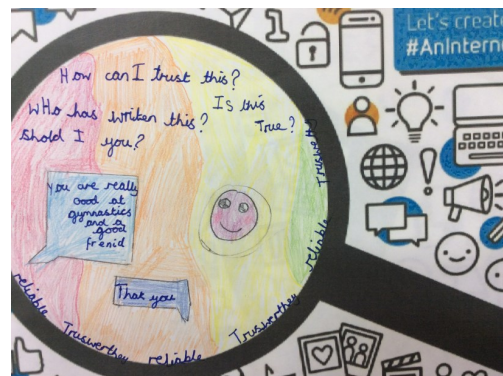 Let's creat
#AnInterne
How can I trust this?
WHo has writen this?
Is this
True?
Shold I you?
you are really
good at
gymnastics
and a
good
frenid
That you
reliable
Trusworthey
reliable
Trusworthey
reliable